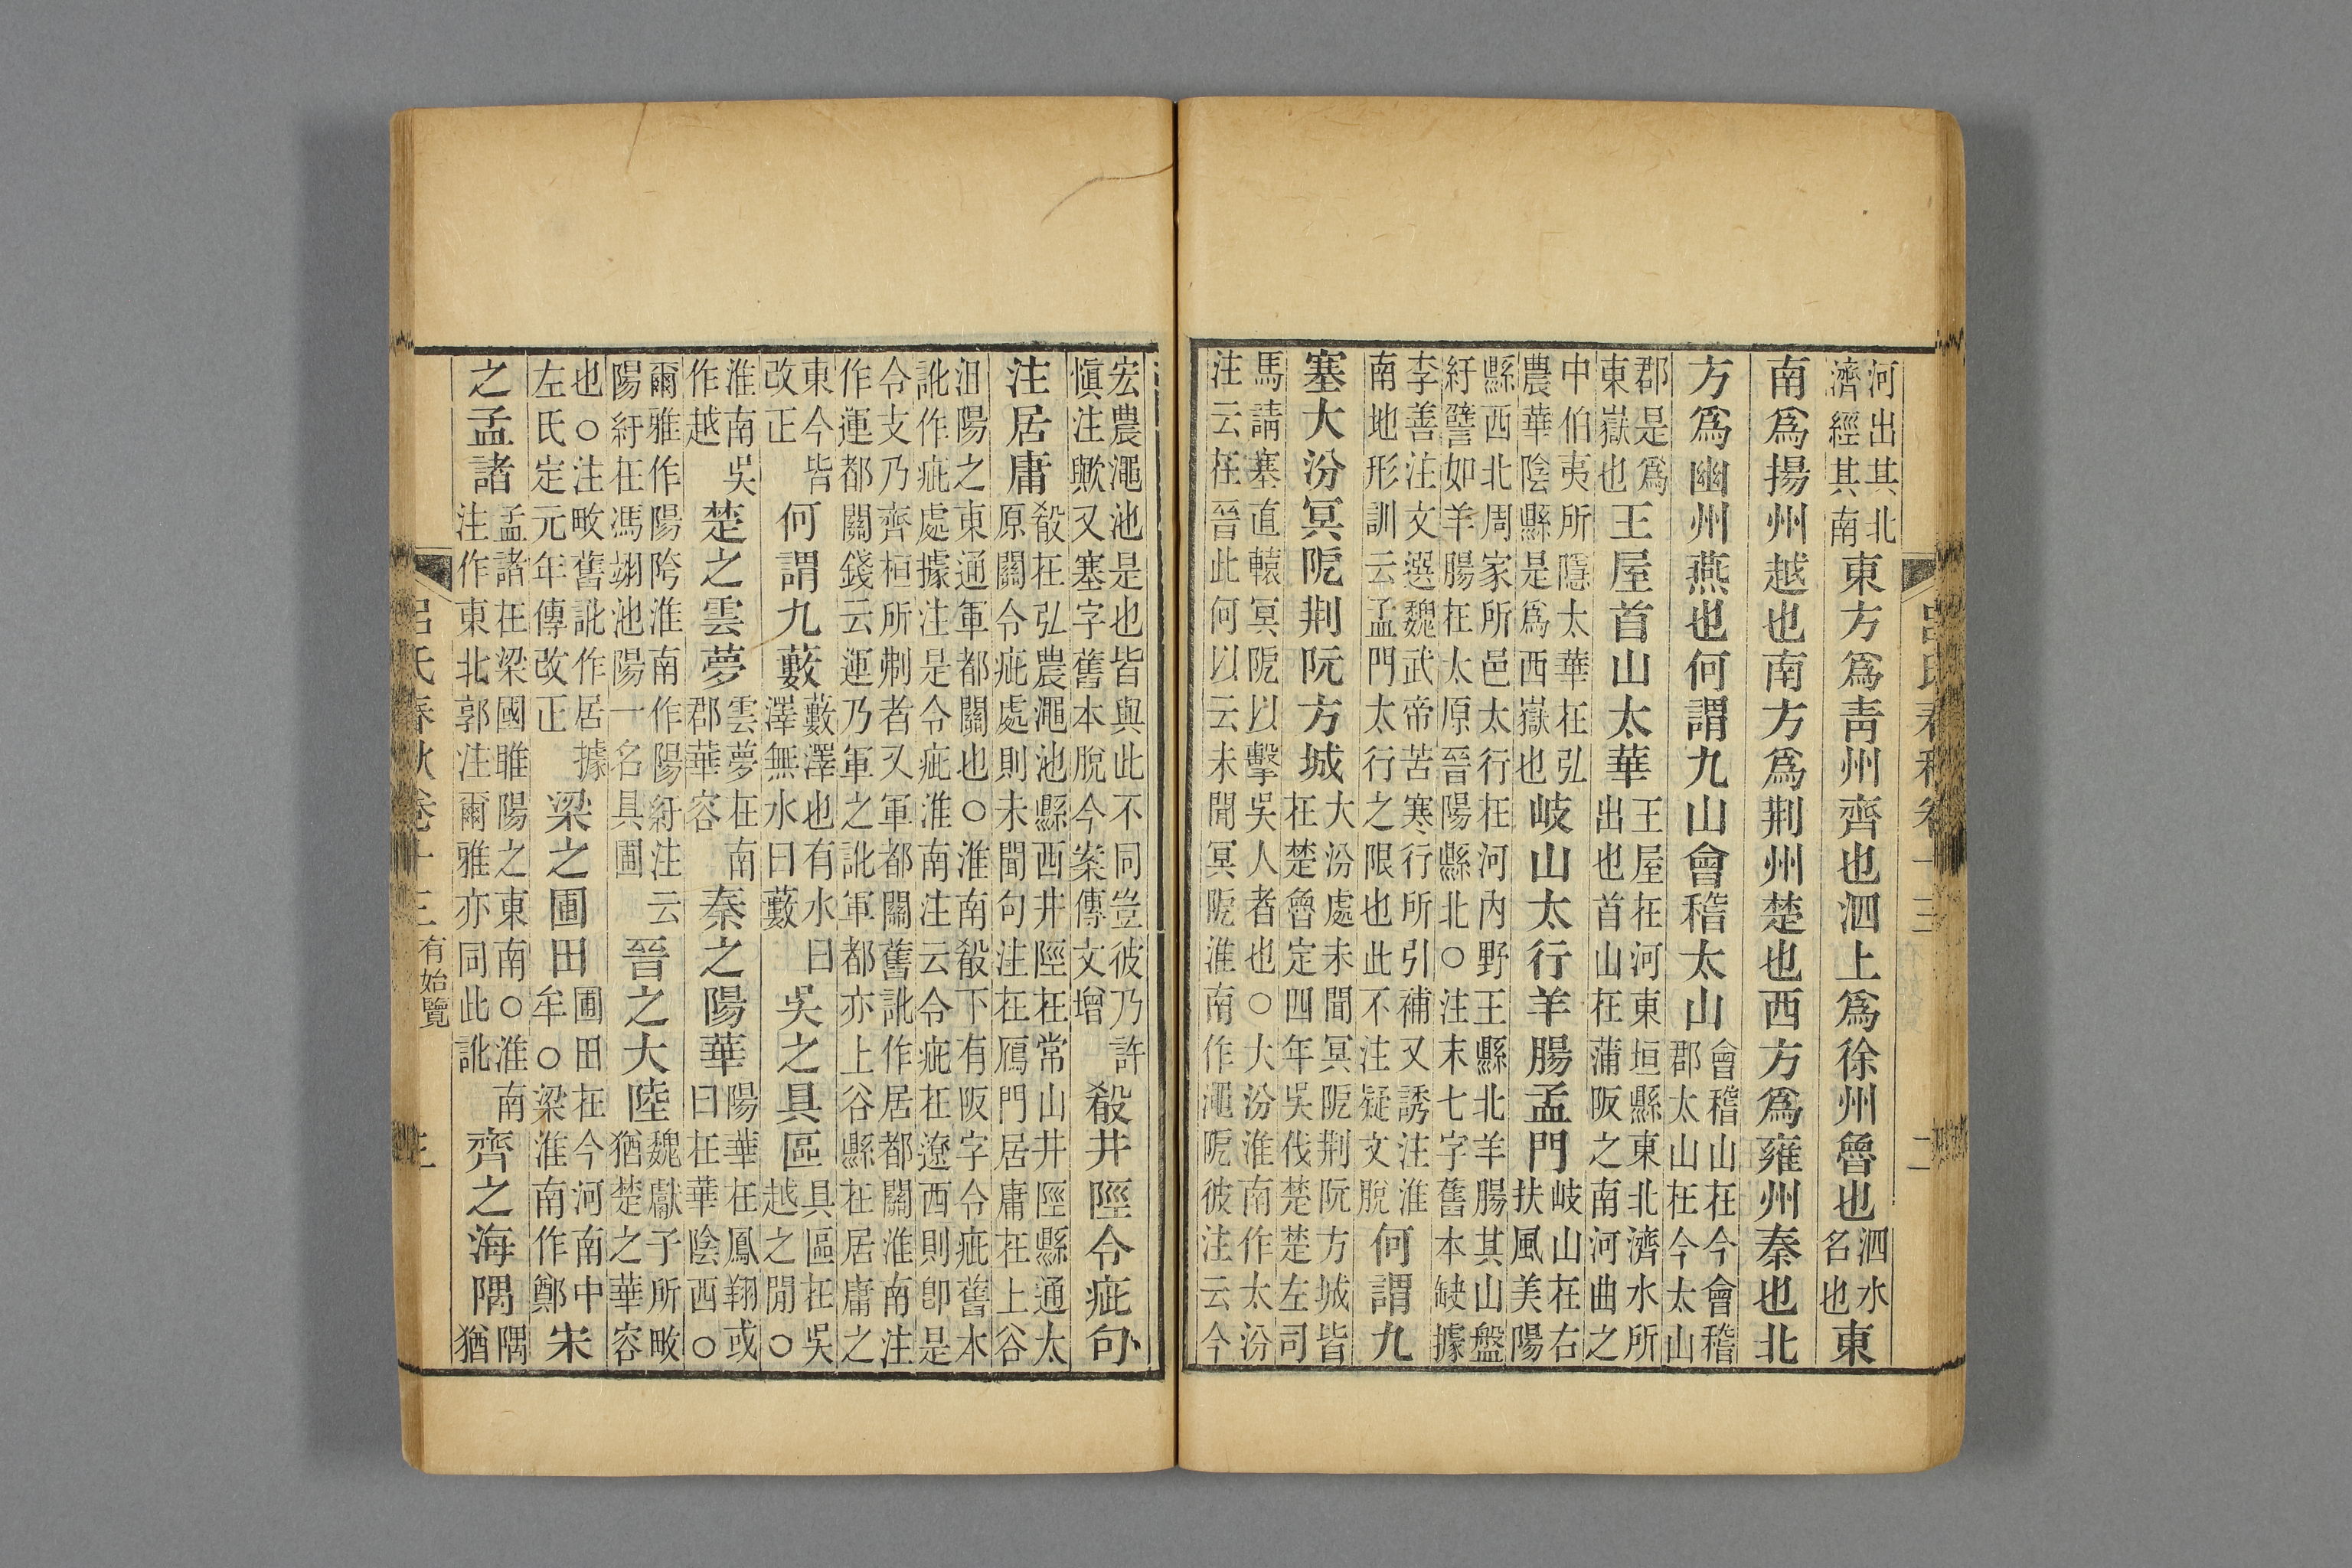 呂氏春秋卷十三 二
河出其北濟經其南東方爲青州齊也泗上爲徐州魯也泗水名也東
南爲揚州越也南方爲荆州楚也西方爲雍州秦也北
方爲幽州燕也何謂九山會稽太山會稽山在今會稽郡太山在今太山
郡是爲東嶽也王屋首山太華王屋在河東垣縣東北濟水所出也首山在蒲阪之南河曲之
中伯夷所隱太華在弘農華陰縣是爲西嶽也岐山太行羊腸孟門岐山在右扶風美陽
縣西北周家所邑太行在河內野王縣北羊腸其山盤紆譬如羊腸在太原晉陽縣北○注末七字舊本缺據
李善注文選魏武帝苦寒行所引補又誘注淮南地形訓云孟門太行之限也此不注疑文脫何謂九
塞大汾冥阨荆阮方城大汾處未聞冥阨荆阮方城皆在楚魯定四年吳伐楚楚左司
馬請塞直轅冥阨以擊吳人者也○大汾淮南作太汾注云在晉此何以云未聞冥阨淮南作澠阨彼注云今
宏農澠池是也皆與此不同豈彼乃許愼注歟又塞字舊本脫今案傳文增殽井陘令疵句
注居庸殽在弘農澠池縣西井陘在常山井陘縣通太原關令疵處則未聞句注在鴈門居庸在上谷
沮陽之東通軍都關也○淮南殽下有阪字令疵舊本訛作疵處據注是令疵淮南注云令疵在遼西則卽是
令支乃齊桓所刜者又軍都關舊訛作居都關淮南注作運都關錢云運乃軍之訛軍都亦上谷縣在居庸之
東今皆改正何謂九藪藪澤也有水曰澤無水曰藪吳之具區具區在吳越之閒○
淮南吳作越楚之雲夢雲夢在南郡華容秦之陽華陽華在鳳翔或曰在華陰西○
爾雅作陽陓淮南作陽紆注云陽紆在馮翊池陽一名具圃晉之大陸魏獻子所畋猶楚之華容
也○注畋舊訛作居據左氏定元年傳改正梁之圃田圃田在今河南中牟○梁淮南作鄭宋
之孟諸孟諸在梁國睢陽之東南○淮南注作東北郭注爾雅亦同此訛齊之海隅隅猶
呂氏春秋卷十三 有始覽